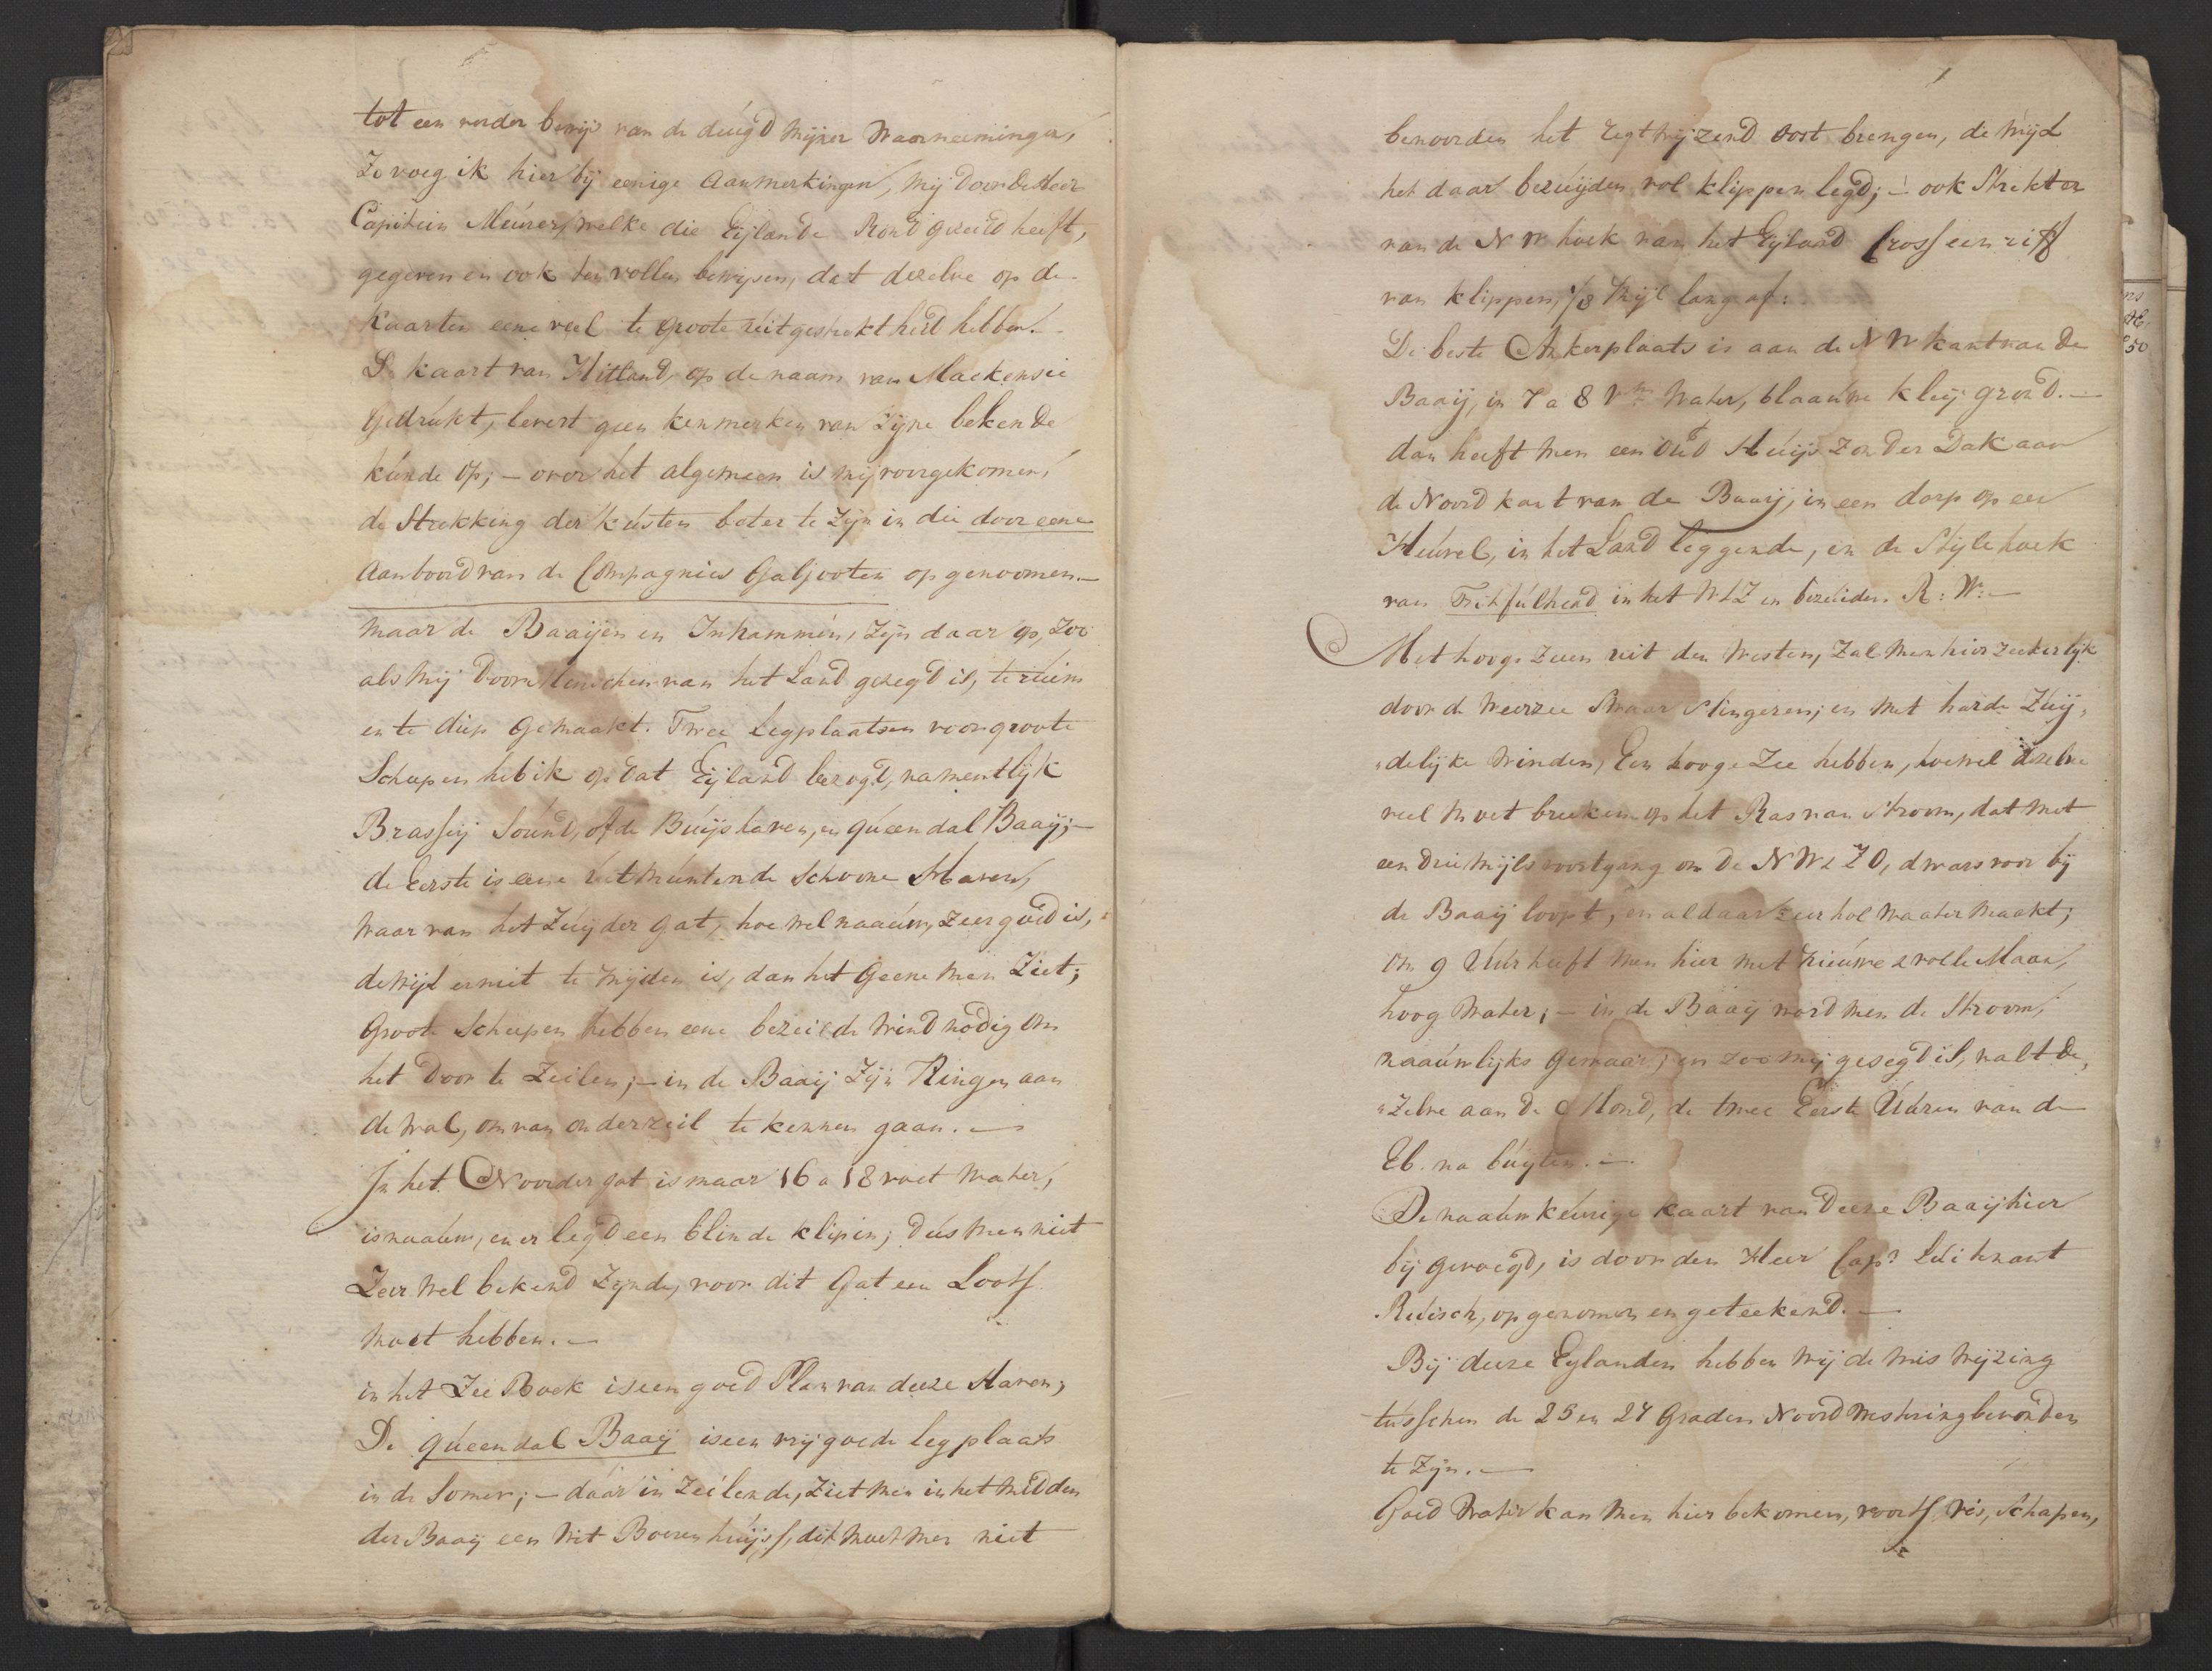 tot een verder bewijs van de deúgd Mijner Waarneemingen,
Zo voeg ik hier bij eenige Aanmerkingen, Mij door de Heer
Capitein Meúrer, welke die Eijlande Rond gezeild heeft,
gegeven en ook ten vollen bewijsen, dat dezelve op de
kaarten eene veel te groote úitgestrektheid hebben.
De kaart van Hitland, op de naam van Mackensie
Gedrúkt, levert geen kenmerken van Zijne bekende
kúnde op; – over het algemeen is mij voorgekomen,
de Strekking der kústen beter te Zijn in die door eene
Aanboord van de Compagnies Galjooten opgenoomen. –
maar de Baaijen en Inhammen, Zijn daar op, Zoo
als Mij door Menschen van het Land gezegd is, te rúim
en te diep Gemaakt. Twee Legplaatsen voor groote
Scheepen heb ik op dat Eijland bezogt, namentlijk
Brassij Soúnd, of de Búijs haven, en qúeendal Baaij; –
de Eerste is eene úitmúntende Schoone Haven,
Waar van het Zúijder gat, hoewel naaúw, Zeer goed is,
dewijl er niet te Mijden is, dan het Geene Men Ziet;
Groote Scheepen hebben eene bezeilde Wind nodig om
het door te Zeilen; – in de Baaij Zijn Ringen aan
de Wal, om van onderzeil te kennen gaan. –
In het Noorder gat is maar 16 a 18 voet Water,
is naaúw, en er legd een blinde klip in; dús Men niet
Zeer Wel bekend Zijnde, voor dit Gat een Loots
Moet hebben. –
in het Zee Boek is een goed Plan van deeze Haven;
De qúeendal Baaij is een vrij goede legplaats
in de Somer; – daar in Zeilende, Ziet Men in het Midden
der Baaij een Wit Boeren húijs, dit Moet Men niet
benoorden het Regtwijzend Oost brengen, de Wijl
het daar bezúijden vol klippen legd; – ook Strekt er
van de N W hoek van het Eijland Cross een riff
van klippen, 1/8 Mijl lang af:
De beste Ankerplaats is aan de N W kant van de
Baaij, in 7 a 8 Vm Water, blaaúwe kleij grond. –
dan heeft Men een oúd Húijs Zonder Dak aan
de Noord kant van de Baaij, in een dorp op een
Heúvel, in het Land leggende, en de Stijle hoek
van Fitfúlhead in het WtZ en bezúiden R: W: –
Met hooge Zeeen uit den Westen, Zal Men hier Zeekerlijk
door de Weerzee Swaar Slingeren; en Met harde Zúij„
„delijke Winden, Een hooge Zee hebben, hoewel dezelve
veel Moet breeken op het Ras van Stroom, dat Met
een drie Mijls voortgang om de N W & Z O, dwars voor bij
de Baaij loopt, en aldaar zeer hol Waater Maakt;
Om 9 Úúr heeft Men hier Met Nieúwe & volle Maan,
hoog Water; – in de Baaij word Men de Stroom,
naaúwlijks Gewaar; en Zoo Mij gesegd is, valt de„
„Zelve aan de Mond, de twee Eerste Úúren van de
Eb na búijten. –
De naaúwkeúrige kaart van deeze Baaij hier
bij gevoegd, is door den Heer Capn Lúitenant
Rúisch, opgenomen en geteekend. –
Bij deeze Eijlanden hebben Wij de Mis Wijzing
tússchen de 25 en 24 Graden Noord Westering bevonden
te Zijn. –
Goed Water kan Men hier bekomen, voorts Vis, Schapen,